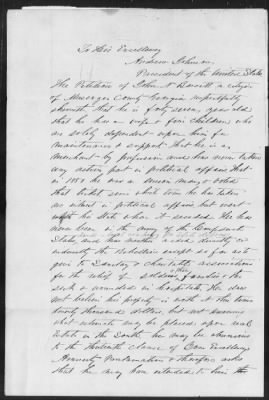 To His Excellency
Andrew Johnson,
President of the United States
The Petition of John N Barnett a citizen
of Muscogee County Georgia respectfully
sheweth that he is forty seven years old
that he has a wife & five children who
are solely dependent upon him for
maintenance & support that he is a
merchant by profession and has never taken
any active part in political affairs that
in 1860 he was a Union man & voted
that ticket since which time he has taken
no interest in political affairs but went
with the State when it seceded. He has
never been in the army of the Confederate
States, and has neither aided directly or
indirectly the rebellion except so far as to
give to Sunday & charitable associations
for the relief of soldiers families & the
sick & wounded in hospitals He does
not believe his property is worth at this time
twenty thousand dollars, but not knowing
what estimate may be placed upon real
estate in the South he may be obnoxious
to the thirteenth clause of Your Excellency's
Amnesty Proclamation & therefore asks
that he may have extended to him the